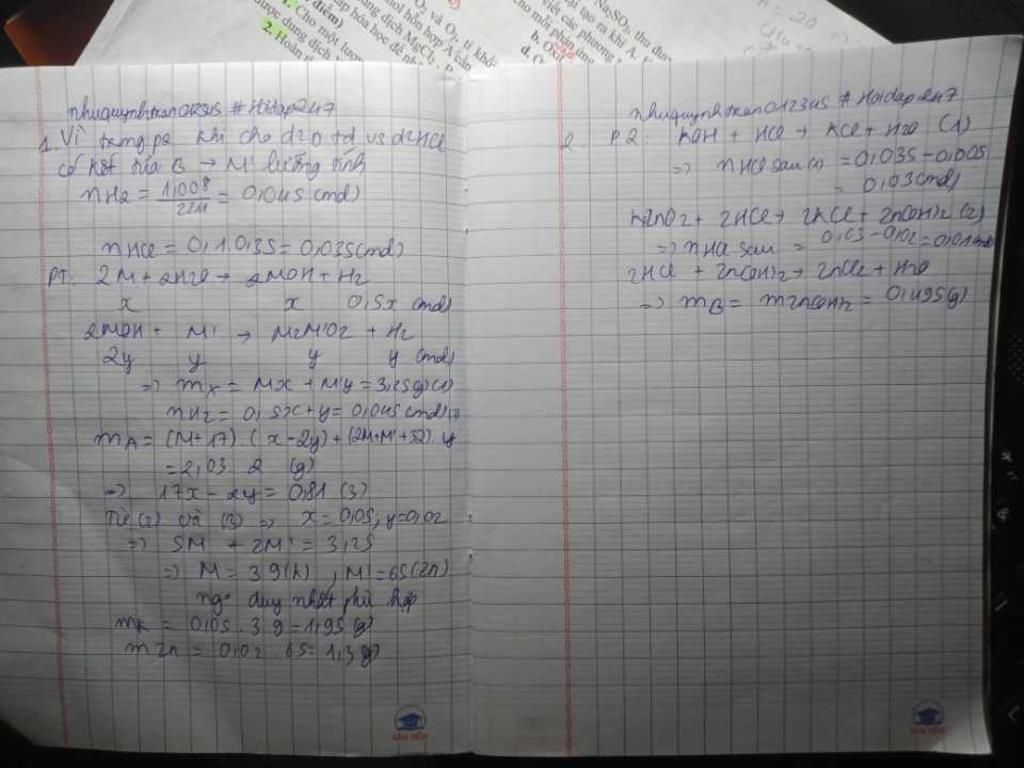 O₂ và O₃, tỉ khối
mol hỗn hợp A cần
1. Cho một lượng
dung dịch MgCl₂
2. Hoàn
được dung dịch
Na₂SO₃, thu được
tạo ra khí A.
viết các phương
cho mỗi phản ứng
b.
d.
nhuquynhtran012345 #Hoidap247
1. Vì trong p2 khi cho d² D td vs d² HCl
có kết tủa B → M' lưỡng tính
nH2 = 1,008/22,4 = 0,045 (mol)
nHCl = 0,1.0,35 = 0,035 (mol)
PT: 2M + 2H2O → 2MOH + H2
x x 0,5x (mol)
2MOH + M' → M2M'O2 + H2
2y y y y (mol)
=> mX = Mx + M'y = 3,25 (g) (1)
nH2 = 0,5x + y = 0,045 (mol) (2)
mA = (M+17).(x-2y) + (2M+M'+32).y
= 2,03.2 (g)
=> 17x - 2y = 0,81 (3)
Từ (2) và (3) => x = 0,05, y = 0,02
=> 5M + 2M' = 325
=> M = 39 (K), M' = 65 (Zn)
duy nhất phù hợp
mK = 0,05.39 = 1,95 (g)
mZn = 0,02.65 = 1,3 (g)
nhuquynhtran012345 #Hoidap247
2. P2: KOH + HCl → KCl + H2O (1)
=> nHCl sau (1) = 0,035 - 0,005
= 0,03 (mol)
K2ZnO2 + 2HCl → 2KCl + Zn(OH)2 (2)
=> nHCl sau = 0,03 - 0,02 = 0,01 mol
2HCl + Zn(OH)2 → ZnCl2 + H2O
=> mB = mZn(OH)2 = 0,495 (g)